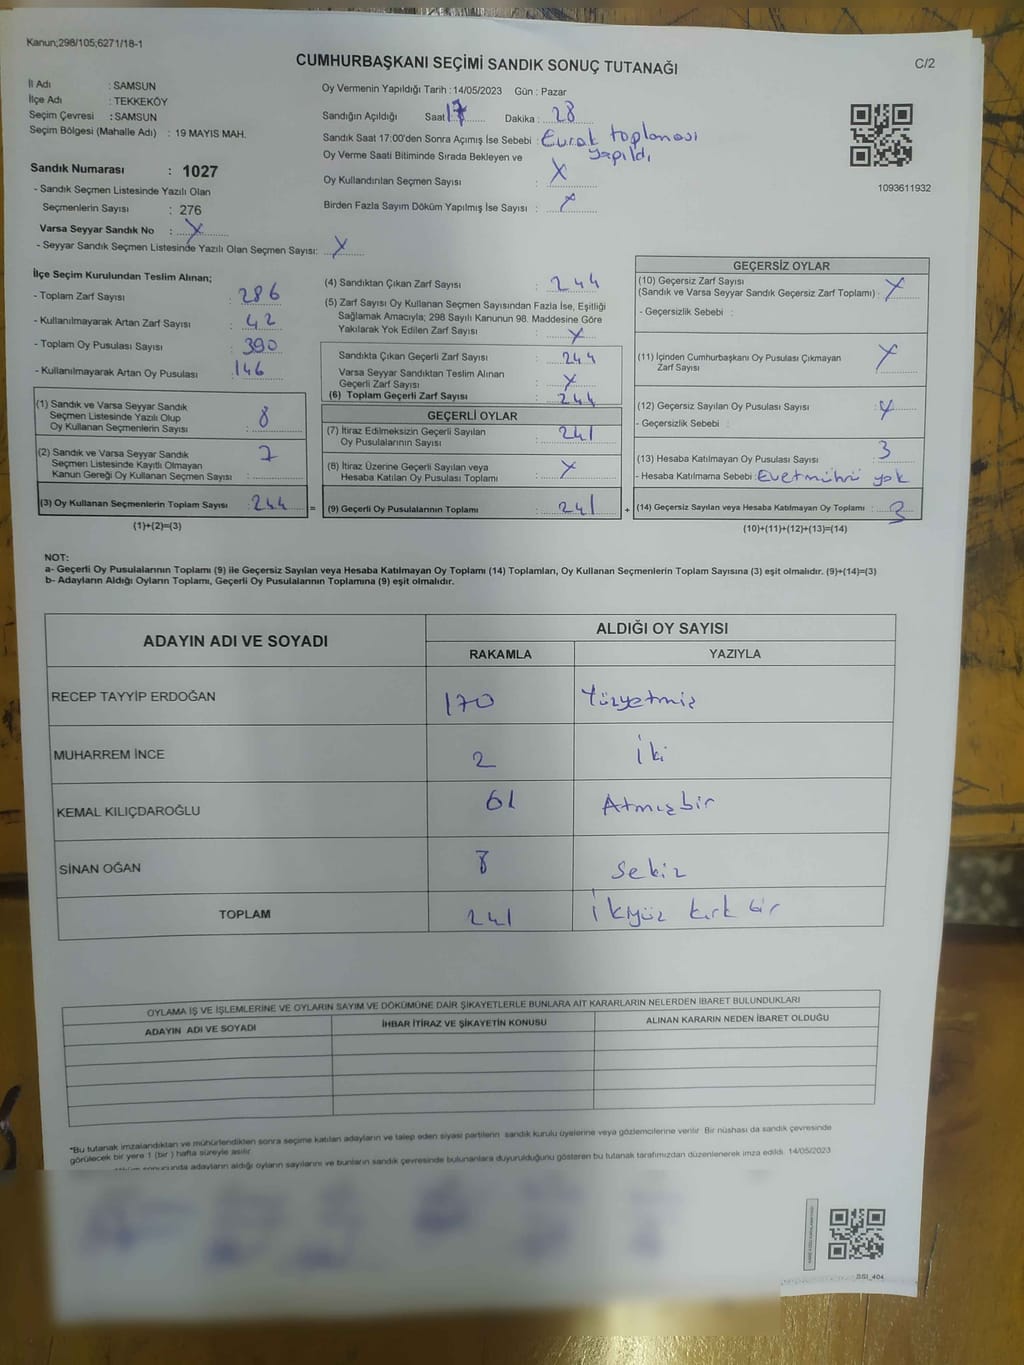 Kanun;298/105;6271/18-1
CUMHURBAŞKANI SEÇİMİ SANDIK SONUÇ TUTANAĞI
C/2
İl Adı : SAMSUN
İlçe Adı : TEKKEKÖY
Seçim Çevresi : SAMSUN
Seçim Bölgesi (Mahalle Adı) : 19 MAYIS MAH.
Sandık Numarası : 1027
- Sandık Seçmen Listesinde Yazılı Olan
Seçmenlerin Sayısı : 276
Varsa Seyyar Sandık No : X
- Seyyar Sandık Seçmen Listesinde Yazılı Olan Seçmen Sayısı: X
Oy Vermenin Yapıldığı Tarih : 14/05/2023 Gün : Pazar
Sandığın Açıldığı Saat 17 Dakika : 28
Sandık Saat 17:00'den Sonra Açımış İse Sebebi : Evrak toplaması
yapıldı
Oy Verme Saati Bitiminde Sırada Bekleyen ve
Oy Kullandırılan Seçmen Sayısı : X
Birden Fazla Sayım Döküm Yapılmış İse Sayısı : X
1093611932
İlçe Seçim Kurulundan Teslim Alınan;
- Toplam Zarf Sayısı : 286
- Kullanılmayarak Artan Zarf Sayısı : 42
- Toplam Oy Pusulası Sayısı : 390
- Kullanılmayarak Artan Oy Pusulası : 146
(1) Sandık ve Varsa Seyyar Sandık
Seçmen Listesinde Yazılı Olup
Oy Kullanan Seçmenlerin Sayısı : 8
(2) Sandık ve Varsa Seyyar Sandık
Seçmen Listesinde Kayıtlı Olmayan
Kanun Gereği Oy Kullanan Seçmen Sayısı : 7
(3) Oy Kullanan Seçmenlerin Toplam Sayısı : 244
(1)+(2)=(3)
(4) Sandıktan Çıkan Zarf Sayısı : 244
(5) Zarf Sayısı Oy Kullanan Seçmen Sayısından Fazla İse, Eşitliği
Sağlamak Amacıyla; 298 Sayılı Kanunun 98. Maddesine Göre
Yakılarak Yok Edilen Zarf Sayısı : X
Sandıkta Çıkan Geçerli Zarf Sayısı : 244
Varsa Seyyar Sandıktan Teslim Alınan
Geçerli Zarf Sayısı : X
(6) Toplam Geçerli Zarf Sayısı : 244
GEÇERLİ OYLAR
(7) İtiraz Edilmeksizin Geçerli Sayılan
Oy Pusulalarının Sayısı : 241
(8) İtiraz Üzerine Geçerli Sayılan veya
Hesaba Katılan Oy Pusulası Toplamı : X
= (9) Geçerli Oy Pusulalarının Toplamı : 241 +
GEÇERSİZ OYLAR
(10) Geçersiz Zarf Sayısı
(Sandık ve Varsa Seyyar Sandık Geçersiz Zarf Toplamı) : X
- Geçersizlik Sebebi :
(11) İçinden Cumhurbaşkanı Oy Pusulası Çıkmayan
Zarf Sayısı : X
(12) Geçersiz Sayılan Oy Pusulası Sayısı : X
- Geçersizlik Sebebi :
(13) Hesaba Katılmayan Oy Pusulası Sayısı : 3
- Hesaba Katılmama Sebebi : Evet mührü yok
(14) Geçersiz Sayılan veya Hesaba Katılmayan Oy Toplamı : 3
(10)+(11)+(12)+(13)=(14)
NOT:
a- Geçerli Oy Pusulalarının Toplamı (9) ile Geçersiz Sayılan veya Hesaba Katılmayan Oy Toplamı (14) Toplamları, Oy Kullanan Seçmenlerin Toplam Sayısına (3) eşit olmalıdır. (9)+(14)=(3)
b- Adayların Aldığı Oyların Toplamı, Geçerli Oy Pusulalarının Toplamına (9) eşit olmalıdır.
ADAYIN ADI VE SOYADI
ALDIĞI OY SAYISI
RAKAMLA YAZIYLA
RECEP TAYYİP ERDOĞAN 170 Yüzyetmiş
MUHARREM İNCE 2 İki
KEMAL KILIÇDAROĞLU 61 Atmışbir
SİNAN OĞAN 8 Sekiz
TOPLAM 241 İkiyüz kırk bir
OYLAMA İŞ VE İŞLEMLERİNE VE OYLARIN SAYIM VE DÖKÜMÜNE DAİR ŞİKAYETLERLE BUNLARA AİT KARARLARIN NELERDEN İBARET BULUNDUKLARI
ADAYIN ADI VE SOYADI İHBAR İTİRAZ VE ŞİKAYETİN KONUSU ALINAN KARARIN NEDEN İBARET OLDUĞU
*Bu tutanak imzalandıktan ve mühürlendikten sonra seçime katılan adayların ve talep eden siyasi partilerin sandık kurulu üyelerine veya gözlemcilerine verilir. Bir nüshası da sandık çevresinde
görülecek bir yere 1 (bir) hafta süreyle asılır.
sonucunda adayların aldığı oyların sayılarını ve bunların sandık çevresinde bulunanlara duyurulduğunu gösteren bu tutanak tarafımızdan düzenlenerek imza edildi. 14/05/2023
SSI_404